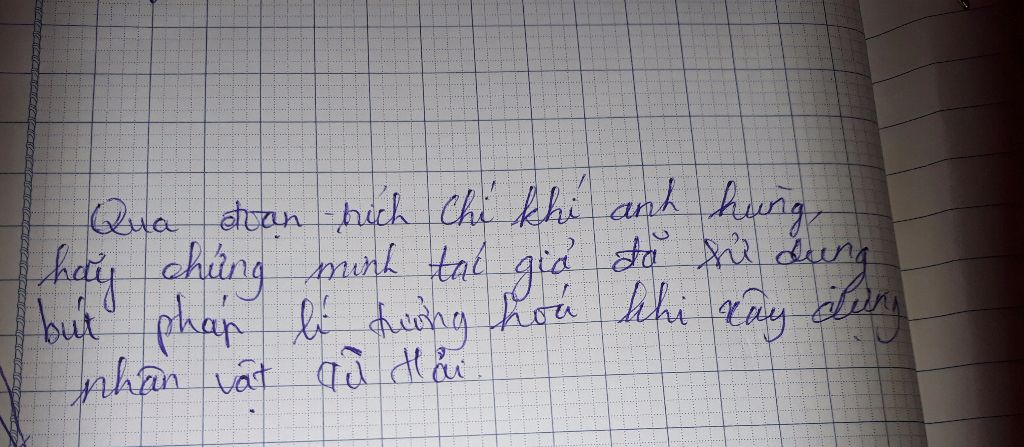 Qua đoạn trích Chí khí anh hùng,
hãy chứng minh tác giả đã sử dụng
bút pháp lí tưởng hoá khi xây dựng
nhân vật Từ Hải.